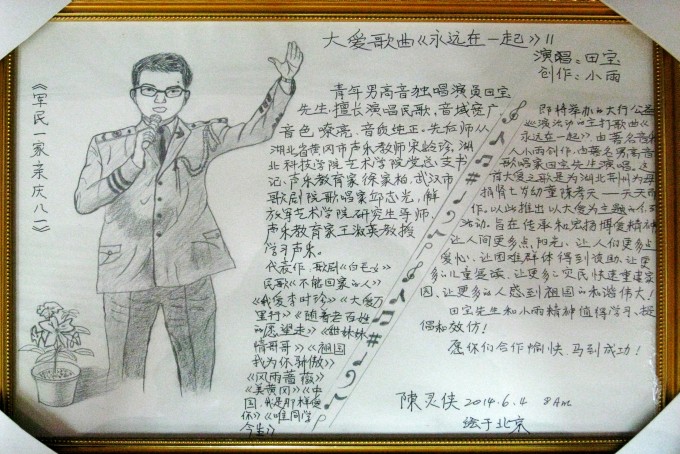 大爱歌曲《永远在一起》！！
演唱：田宝
创作：小雨
《军民一家亲庆八一》
青年男高音独唱演员田宝
先生：擅长演唱民歌，音域宽广，
音色嘹亮，音质纯正。先后师从
湖北省黄冈市声乐教师宋岭珍，湖
北科技学院艺术学院党总支书
记、声乐教育家徐家柏，武汉市
歌剧院歌唱家邱志光，解
放军艺术学院研究生导师、
声乐教育家王淑英教授
学习声乐。
代表作，歌剧《白毛女》
民歌《不能回家的人》
《我爱李时珍》《大爱万
里行》《随着老百姓
的愿望走》《妞妹妹
情哥哥》《祖国
我为你骄傲》
《风雨蔷薇》
《美黄冈》《中
国，我是那样爱
你》《唯同学
今生》
即将举办的大行公益
巡演活动的主打歌曲《
永远在一起》由著名音乐
人小雨创作，由著名男高音
歌唱家田宝先生演唱。这
首大爱之歌是为湖北荆州为母
捐肾七岁幼童陈孝天一一天天而
作。以此推出以大爱为主题的
活动。旨在传承和宏扬博爱精神
让人间更多点阳光，让人们更多点
爱心，让困难群体得到援助，让更
多的儿童受读，让更多灾民快速重建家
园，让更多的人感到祖国的和谐伟大！
田宝先生和小雨精神值得学习，提
倡和效仿！
愿你们合作愉快，马到成功！
陳灵侠 2014.6.4 8AM
绘于北京